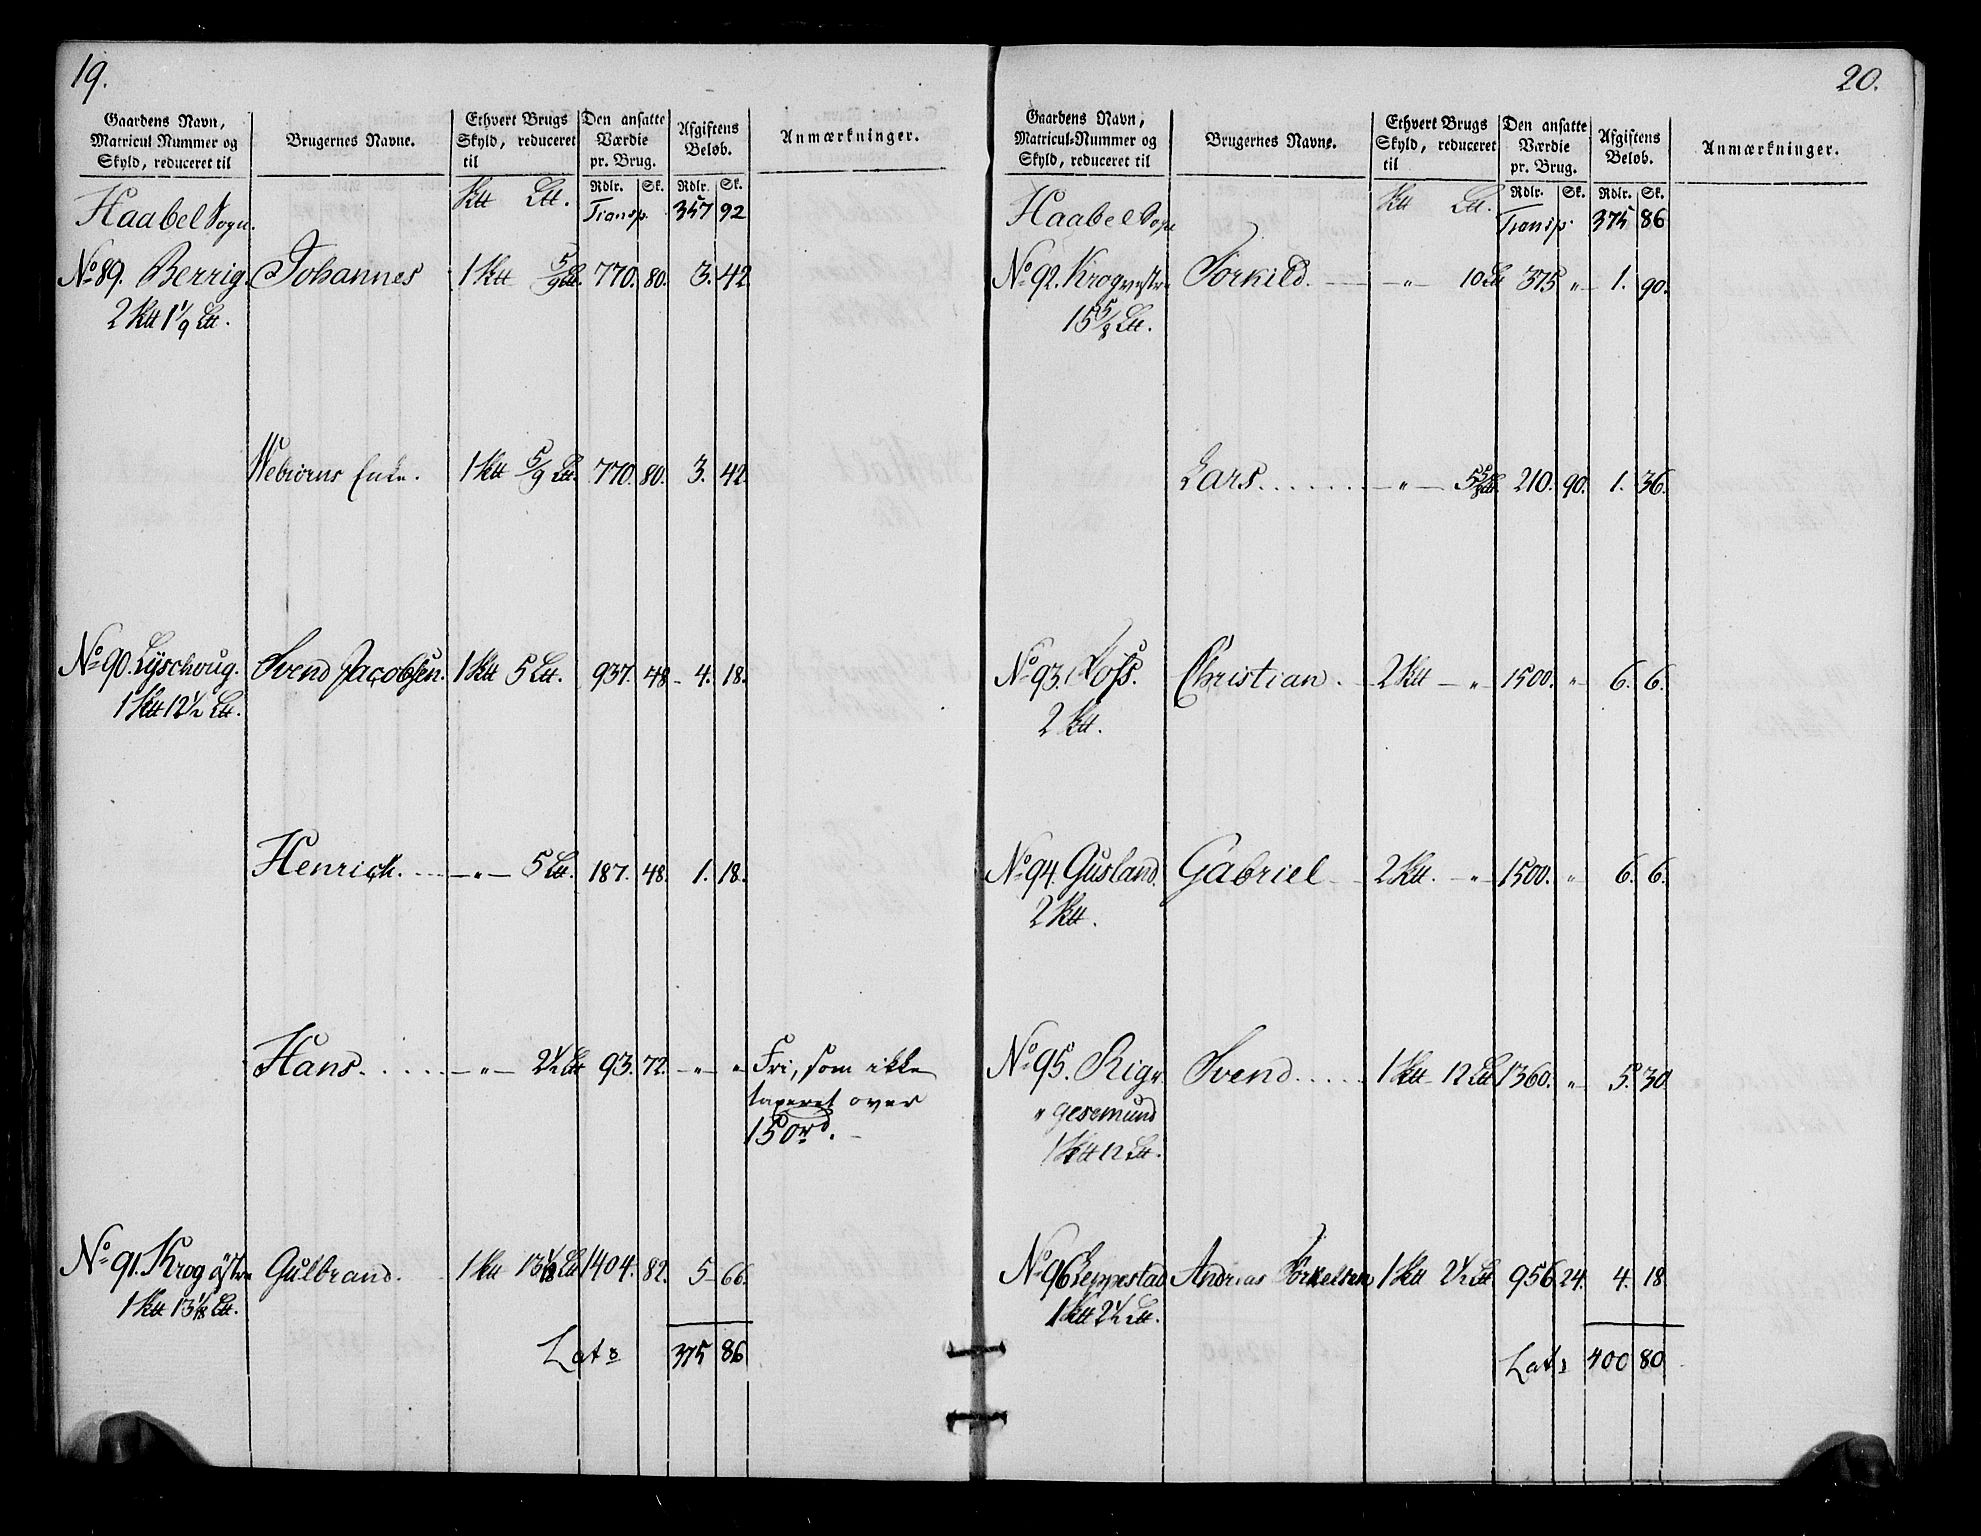 19.
Gaardens Navn, Matricul Nummer og Skyld, reduceret til | Brugernes Navne. | Ethvert Brugs Skyld, reduceret til | Den ansatte Værdie pr. Brug. | Afgiftens Beløb. | Anmærkninger.
Rdlr. Sk. Rdlr. Sk.
Haabel Sogn. Ktt Ltt. Transp. 357 92
No 89. Berrig. Johannes 1 Ktt 5/9 Ltt. 770. 80. 3. 42.
2 Ktt 1 1/9 Ltt.
Webiorns Enke. 1 Ktt 5/9 Ltt. 770. 80. 3. 42.
No 90. Lyschoug. Svend Jacobsen. 1 Ktt 5 Ltt. 937. 48. 4. 18.
1 Ktt 12 1/2 Ltt.
Henrich. — " — 5 Ltt. 187. 48. 1. 18.
Hans. — " — 2 1/2 Ltt 93. 72. — " — " Fri, som ikke
taxeret over
150 rd. —
No 91. Krog østre Gulbrand. 1 Ktt 13 1/18 Ltt 1404. 82. 5 66.
1 Ktt 13 1/18 Ltt.
Lats 375 86
20.
Gaardens Navn, Matricul-Nummer og Skyld, reduceret til | Brugernes Navne. | Ethvert Brugs Skyld, reduceret til | Den ansatte Værdie pr. Brug. | Afgiftens Beløb. | Anmærkninger.
Rdlr. Sk. Rdlr. Sk.
Haabel Sogn Ktt Ltt. Transp 375 86
No 92. Krog vestre Torkild. — " — 10 Ltt 375 " 1. 90.
15 5/8 Ltt.
Lars. — " — 5 5/8 Ltt. 210. 90. 1. 36.
No 93. Foss. Christian. 2 Ktt — " — 1500. " 6. 6.
2 Ktt.
No 94. Gusland. Gabriel 2 Ktt. — " — 1500. " 6. 6.
2 Ktt.
No 95. Rig= Svend. 1 Ktt 12 Ltt 1360. " 5. 30
" gesemund
1 Ktt 12 Ltt.
No 96 Leppestad Andreas Torkelsen 1 Ktt 2 1/2 Ltt 956 24. 4. 18
1 Ktt 2 1/2 Ltt.
Lats 400 80